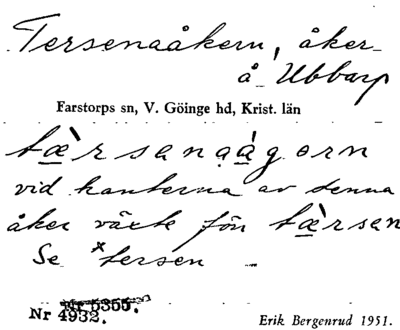 Tersenaåkern, åker
å Ubbarp
Farstorps sn, V. Göinge hd, Krist. län
tæ̀rsenaågern
vid kanterna av denna
åker växte förr tæ̀rsen
Se *tersen
Nr 5355.
Nr 4932.
Erik Bergenrud 1951.